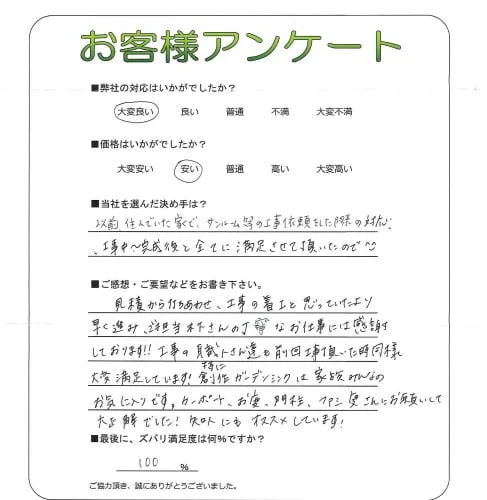 お客様アンケート
■弊社の対応はいかがでしたか？
大変良い 良い 普通 不満 大変不満
■価格はいかがでしたか？
大変安い 安い 普通 高い 大変高い
■当社を選んだ決め手は？
以前、住んでいた家で、サンルーム等の工事依頼をした際の対応、
、工事中〜完成後と全てに満足させて頂いたので
■ご感想・ご要望などをお書き下さい。
見積から打ちあわせ、工事の着工と思っていたより
早く進み、ご担当木下さんの丁 なお仕事には感謝
しております!! 工事の 人さん達も前回工事頂いた時同様
大変満足しています! 特に創作ガーデンシンクは家族みんなの
お気に入りです。カーポート、お庭、門柱、 さんにお願いして
大正解でした! 知人にもオススメしています!
■最後に、ズバリ満足度は何％ですか？
100 ％
ご協力頂き、誠にありがとうございました。